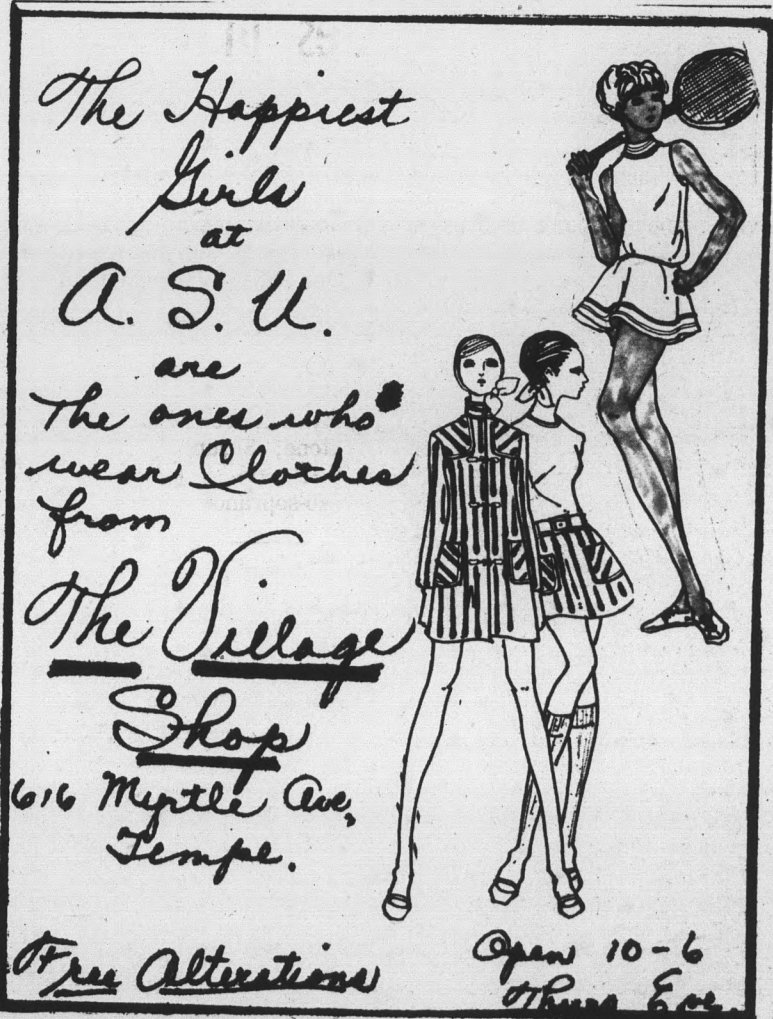 The Happiest
Girls
at
A. S. U.
are
The ones who
wear Clothes
from
The Village
Shop
616 Myrtle Ave,
Tempe.
Free Alterations
Open 10-6
Thurs Eve.